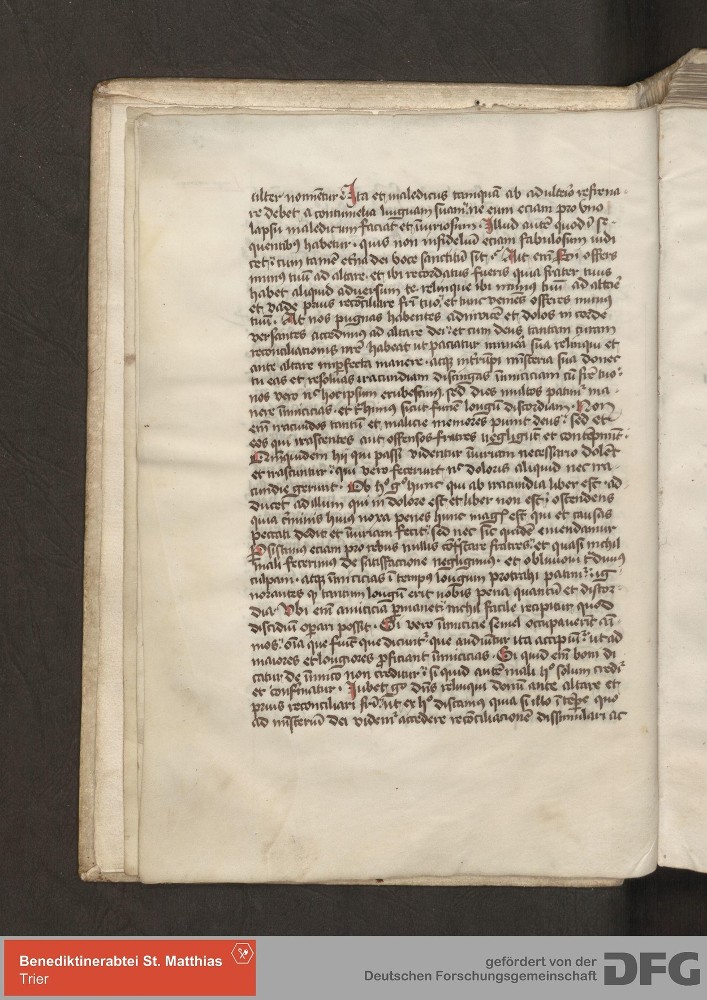 aliter nominetur Ita et maledicus tamquã ab adulterio refrena
re debet a contumelia linguam suam ne eum eciam pro uno
lapsu maledictum faciat et iniuriosum. Illud autẽ quod
quentibus habetur. quis non infideliũ eciam fabulosum iudi
cet cum tamẽ dei voce sanctitũ sit. Ait enĩ offers
munus tuũ ad altare. et ibi recordatus fueris quia frater tuus
habet aliquid adversum te. relinque ibi munus tuũ ad altare
et vade prius reconciliare fri tuo. et tunc veniens offeres munus
tuũ. At nos pugnas habentes adinvicẽ et dolos in corde
versantes accedimus ad altare dei. et cum deus tantam curam
reconciliationis nre habeat ut paciatur munera sua relinqui et
ante altare imperfecta manere. atque interrũpi misteria sua donec
tu eas et resolvas iracundiam distingas inimiciciam cũ fre tuo
nos vero nec hoc ipsum erubescimus sed dies multos patimur ma
nere inimicicias. et sicut funẽ longũ discordiam. Non
enĩ iracũdos tantũ et malicie memores punit deus. sed et
eos qui irascentes aut offensos fratres negligũt et contẽpnunt.
Quinquidem hii qui passi videntur iniuriam necessario dolẽt
et irascuntur. qui vero fecerunt nec doloris aliquid nec ira
cundie gerunt. Ob hoc ergo hunc qui ab iracundia liber est. ad
ducet ad illum qui in dolore est et liber non est. ostendens
quia criminis huius noxa penes hunc magis est qui et causas
peccati dedit et iniuriam fecit. sed nec sic quidẽ emendamur
Persistimus eciam pro rebus nullis contristare fratres. et quasi nichil
mali fecerimus de satisfactione negligimus. et oblivioni tradimus
culpam. atque inimicicias ĩ tempus longum protrahi patimur. ig
norantes quod tantum longũ erit nobis pena quantũ et discor
dia. Ubi enĩ amicicia permanet nichil facile recipitur quod
discidiũ operari possit. Si vero inimicicie semel occupaverit ani
mos. oĩa que fiunt que dicunt que audiuntur ita accipiuntur ut ad
maiores et longiores proficiant inimicicias. Si quid enĩ boni di
citur de inimico non creditur. si quid autẽ mali hoc solum creditur
et confirmatur. Iubet ergo dñs relinqui donũ ante altare et
prius reconciliari fri. ut ex hoc discamus quia si illo ĩ tempore quo
ad misteriũ dei videmur accedere reconciliationẽ dissimulari ac
Benediktinerabtei St. Matthias
Trier
gefördert von der
Deutschen Forschungsgemeinschaft
DFG